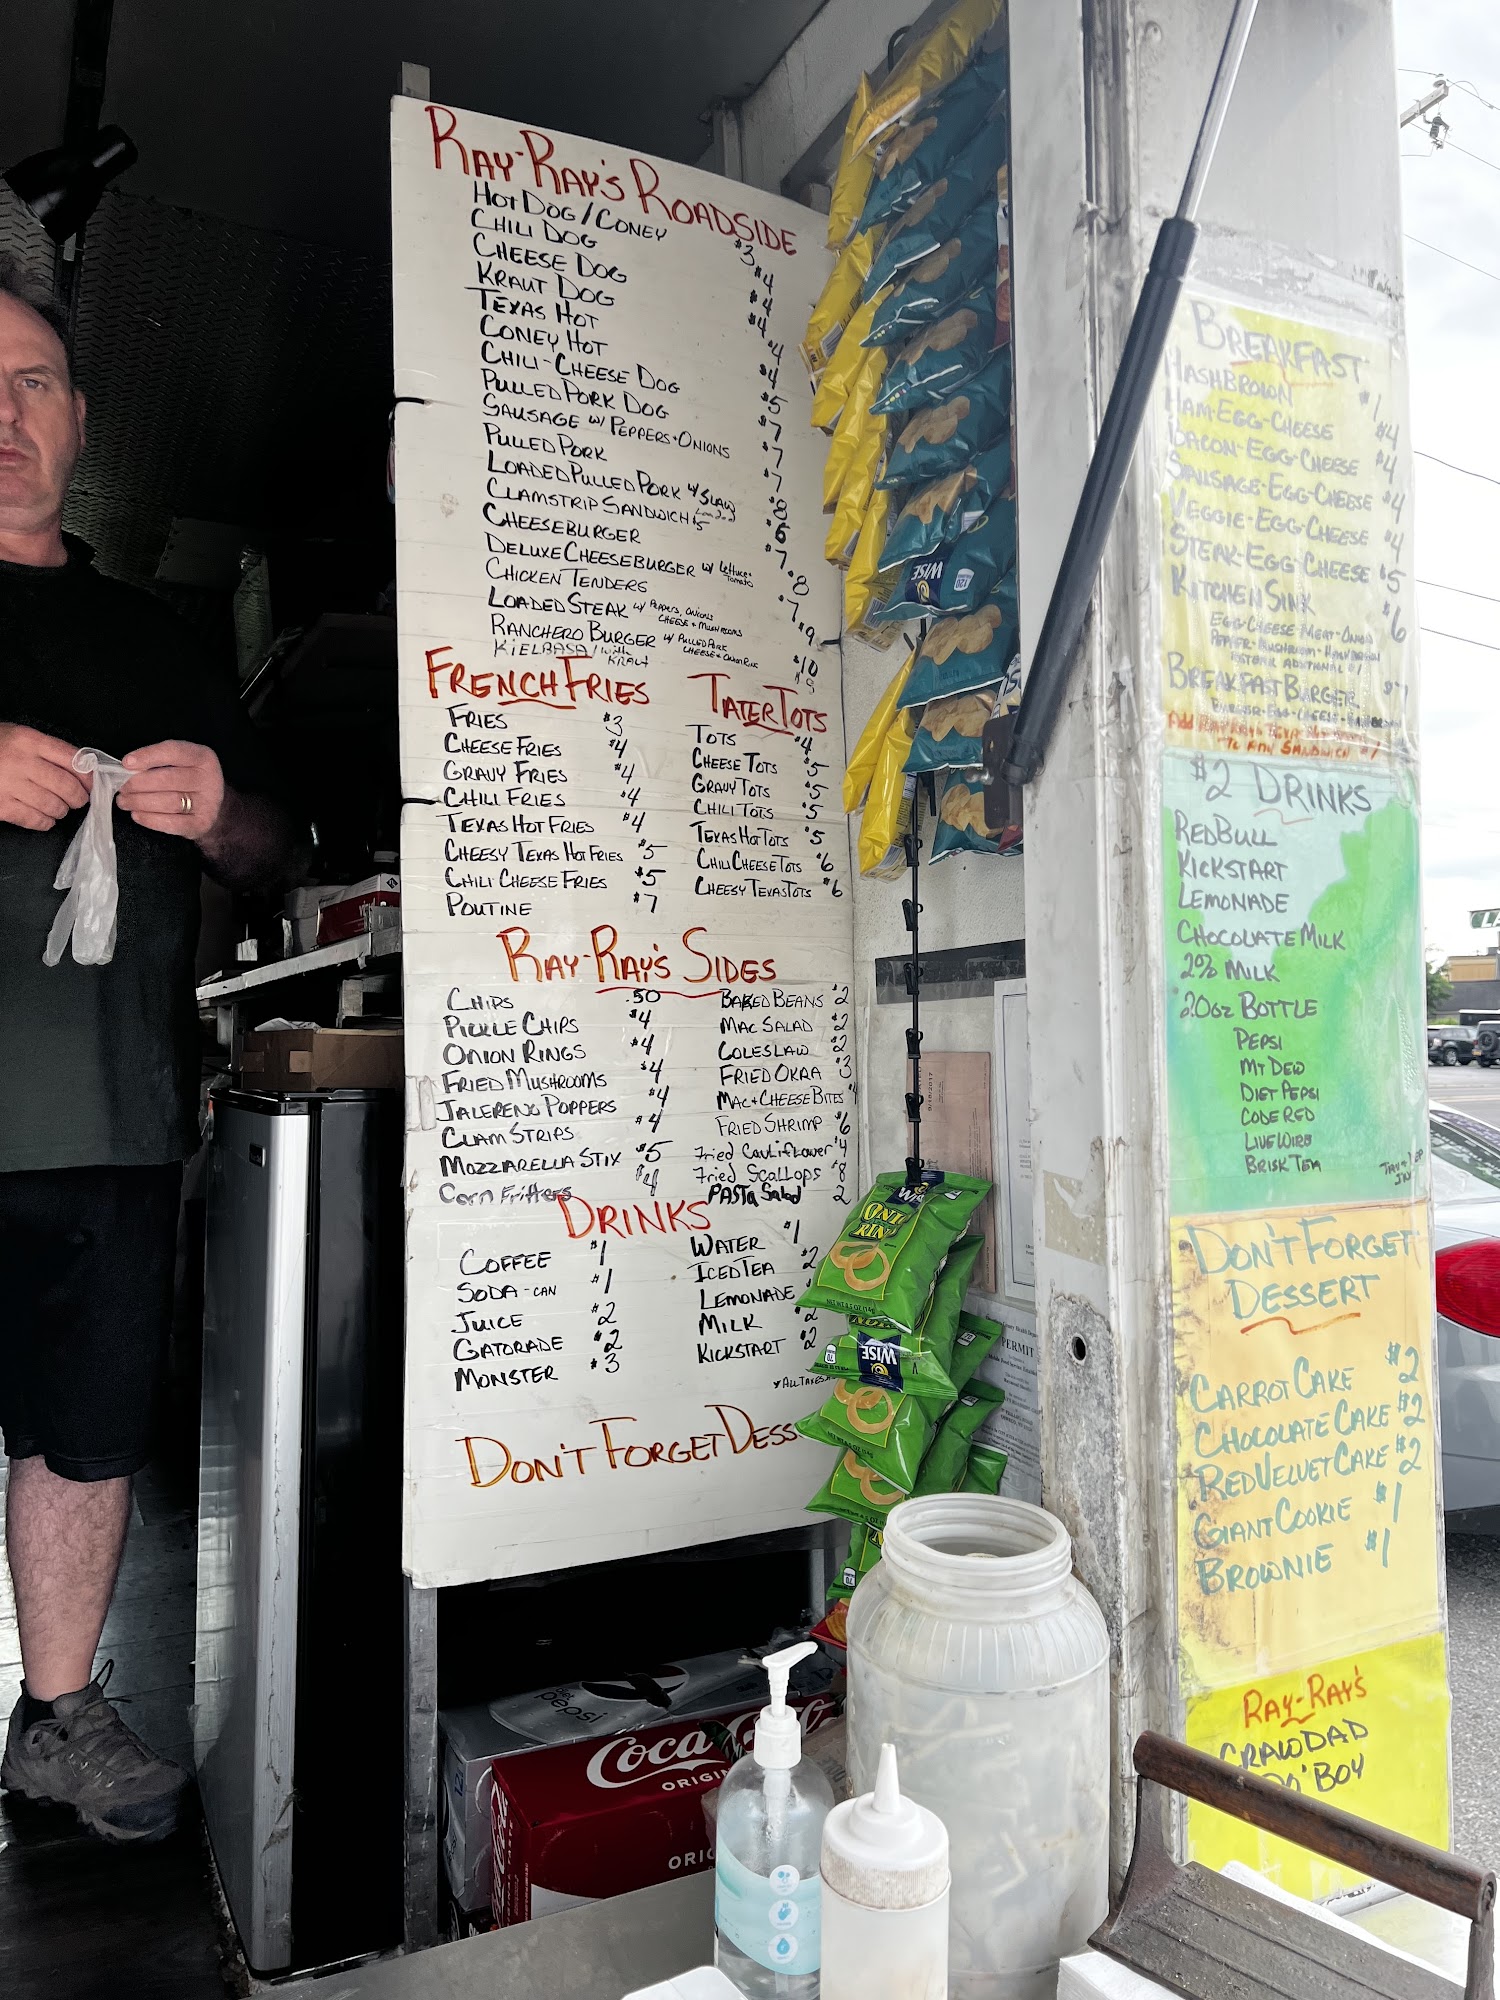 RAY-RAY'S ROADSIDE
HOT DOG / CONEY $3
CHILI DOG $4
CHEESE DOG $4
KRAUT DOG $4
TEXAS HOT $4
CONEY HOT $4
CHILI-CHEESE DOG $5
PULLED PORK DOG $7
SAUSAGE W/ PEPPERS + ONIONS $7
PULLED PORK $7
LOADED PULLED PORK W/ SLAW $8
CLAMSTRIP SANDWICH $5 $6
CHEESEBURGER $7
DELUXE CHEESEBURGER W/ Lettuce + Tomato $8
CHICKEN TENDERS $7
LOADED STEAK W/ PEPPERS, ONIONS CHEESE + MUSHROOMS $9
RANCHERO BURGER W/ PULLED PORK CHEESE + ONION RING $10
KIELBASA / with KRAUT
FRENCH FRIES
FRIES $3
CHEESE FRIES $4
GRAVY FRIES $4
CHILI FRIES $4
TEXAS HOT FRIES $4
CHEESY TEXAS HOT FRIES $5
CHILI CHEESE FRIES $5
POUTINE $7
TATER TOTS
TOTS $4
CHEESE TOTS $5
GRAVY TOTS $5
CHILI TOTS $5
TEXAS HOT TOTS $5
CHILI CHEESE TOTS $6
CHEESY TEXAS TOTS $6
RAY-RAY'S SIDES
CHIPS .50
PICKLE CHIPS $4
ONION RINGS $4
FRIED MUSHROOMS $4
JALEPENO POPPERS $4
CLAM STRIPS $4
MOZZARELLA STIX $5
Corn Fritters $4
BAKED BEANS $2
MAC SALAD $2
COLESLAW $2
FRIED OKRA $3
MAC + CHEESE BITES $4
FRIED SHRIMP $6
Fried CauLifLower $4
Fried ScaLLops $8
PASTA Salad 2
DRINKS
COFFEE $1
SODA - CAN $1
JUICE $2
GATORADE $2
MONSTER $3
WATER $1
ICED TEA $2
LEMONADE
MILK $2
KICKSTART $2
ALL TAXES
DON'T FORGET DESS
BREAKFAST
HASHBROWN $1
HAM-EGG-CHEESE $4
BACON-EGG-CHEESE $4
SAUSAGE-EGG-CHEESE $4
VEGGIE-EGG-CHEESE $4
STEAK-EGG-CHEESE $5
KITCHEN SINK $6
EGG-CHEESE-MEAT-ONION
PEPPER-MUSHROOM-HASHBROWN
ADDITIONAL $1
BREAKFAST BURGER
BURGER-EGG-CHEESE-HASHBROWN
TO ANY SANDWICH $1
$2 DRINKS
REDBULL
KICKSTART
LEMONADE
CHOCOLATE MILK
2% MILK
20oz BOTTLE
PEPSI
MT DEW
DIET PEPSI
CODE RED
LIVEWIRE
BRISK TEA
DON'T FORGET
DESSERT
CARROT CAKE $2
CHOCOLATE CAKE $2
RED VELVET CAKE $2
GIANT COOKIE $1
BROWNIE $1
RAY-RAY'S
CRAWDAD
PO' BOY
WISE
ONI
RIN
WISE
PERMIT
diet pepsi
Coca
ORIGIN
ORIG